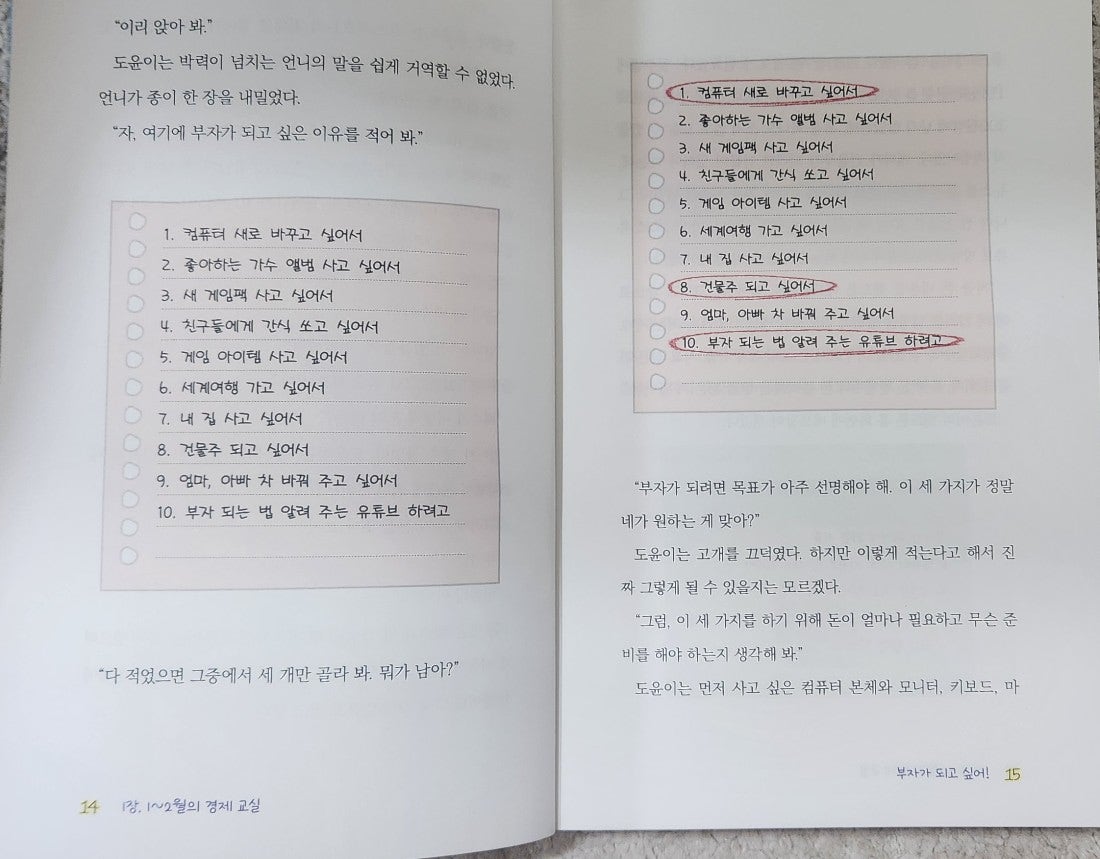 “이리 앉아 봐.”
도윤이는 박력이 넘치는 언니의 말을 쉽게 거역할 수 없었다.
언니가 종이 한 장을 내밀었다.
“자, 여기에 부자가 되고 싶은 이유를 적어 봐.”
1. 컴퓨터 새로 바꾸고 싶어서
2. 좋아하는 가수 앨범 사고 싶어서
3. 새 게임팩 사고 싶어서
4. 친구들에게 간식 쏘고 싶어서
5. 게임 아이템 사고 싶어서
6. 세계여행 가고 싶어서
7. 내 집 사고 싶어서
8. 건물주 되고 싶어서
9. 엄마, 아빠 차 바꿔 주고 싶어서
10. 부자 되는 법 알려 주는 유튜브 하려고
“다 적었으면 그중에서 세 개만 골라 봐. 뭐가 남아?”
14 1장. 1~2월의 경제 교실
1. 컴퓨터 새로 바꾸고 싶어서
2. 좋아하는 가수 앨범 사고 싶어서
3. 새 게임팩 사고 싶어서
4. 친구들에게 간식 쏘고 싶어서
5. 게임 아이템 사고 싶어서
6. 세계여행 가고 싶어서
7. 내 집 사고 싶어서
8. 건물주 되고 싶어서
9. 엄마, 아빠 차 바꿔 주고 싶어서
10. 부자 되는 법 알려 주는 유튜브 하려고
“부자가 되려면 목표가 아주 선명해야 해. 이 세 가지가 정말
네가 원하는 게 맞아?”
도윤이는 고개를 끄덕였다. 하지만 이렇게 적는다고 해서 진
짜 그렇게 될 수 있을지는 모르겠다.
“그럼, 이 세 가지를 하기 위해 돈이 얼마나 필요하고 무슨 준
비를 해야 하는지 생각해 봐.”
도윤이는 먼저 사고 싶은 컴퓨터 본체와 모니터, 키보드, 마
부자가 되고 싶어! 15